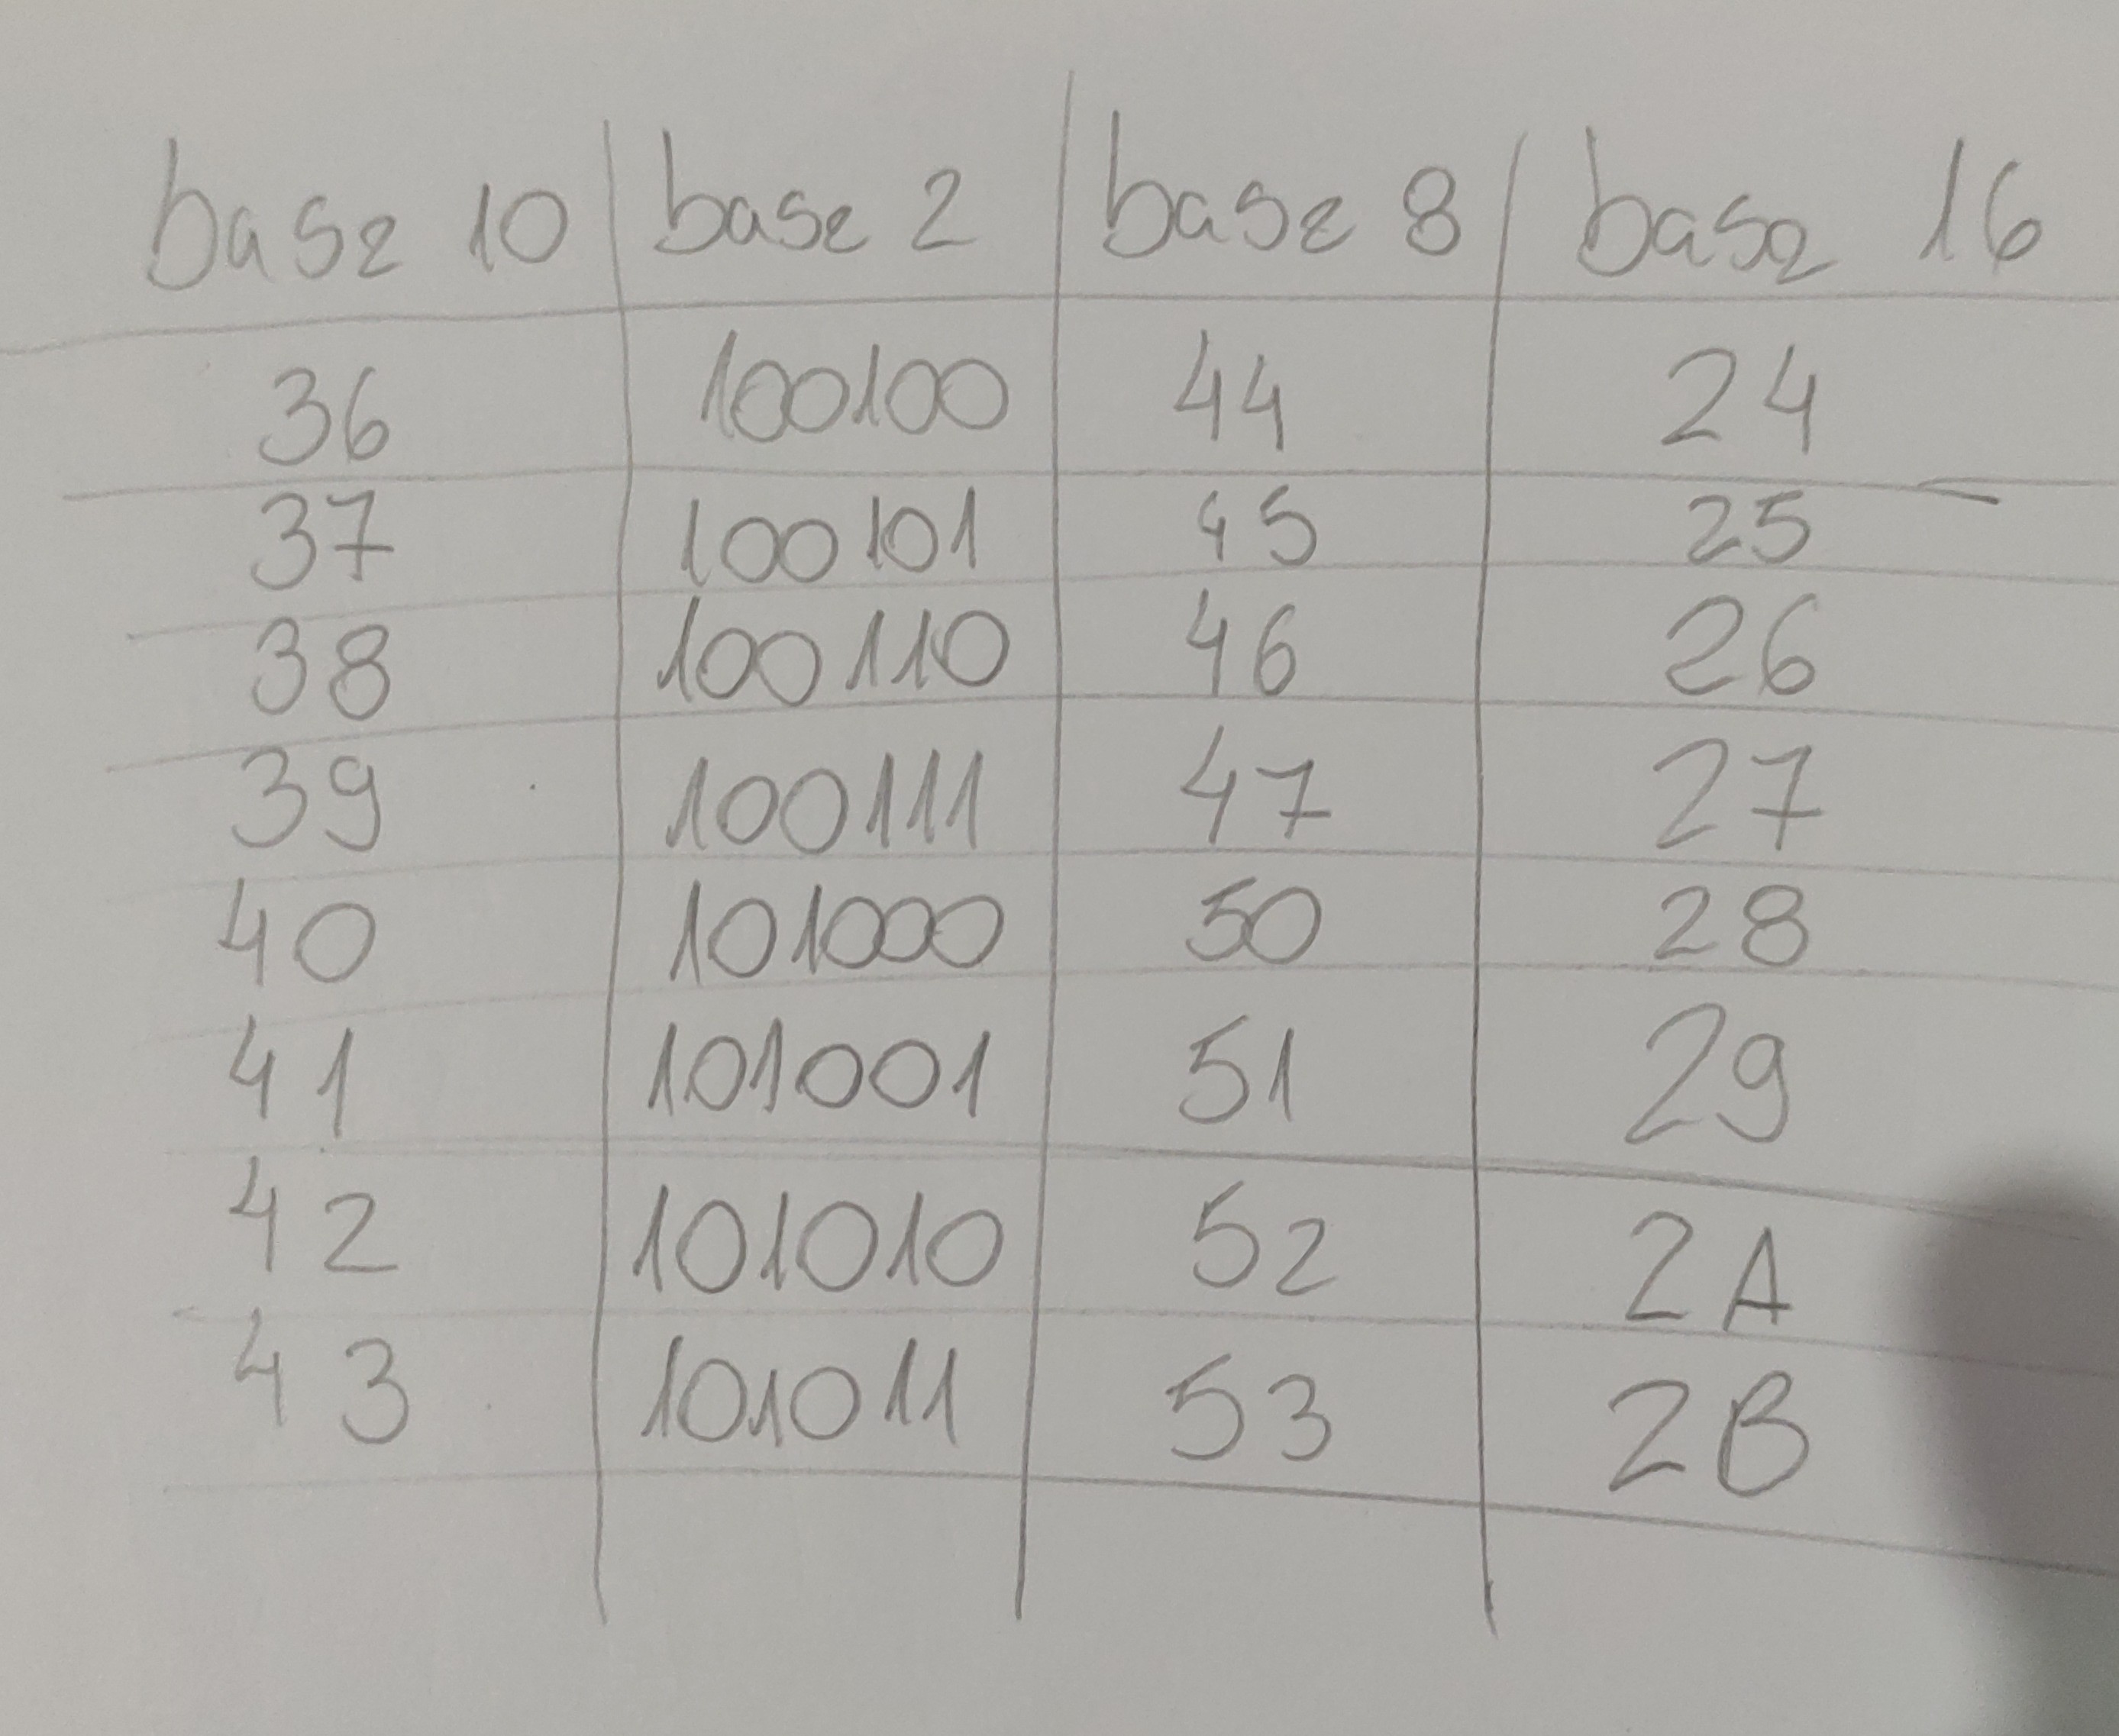 base 10 base 2 base 8 base 16
36 100100 44 24
37 100101 45 25
38 100110 46 26
39 100111 47 27
40 101000 50 28
41 101001 51 29
42 101010 52 2A
43 101011 53 2B